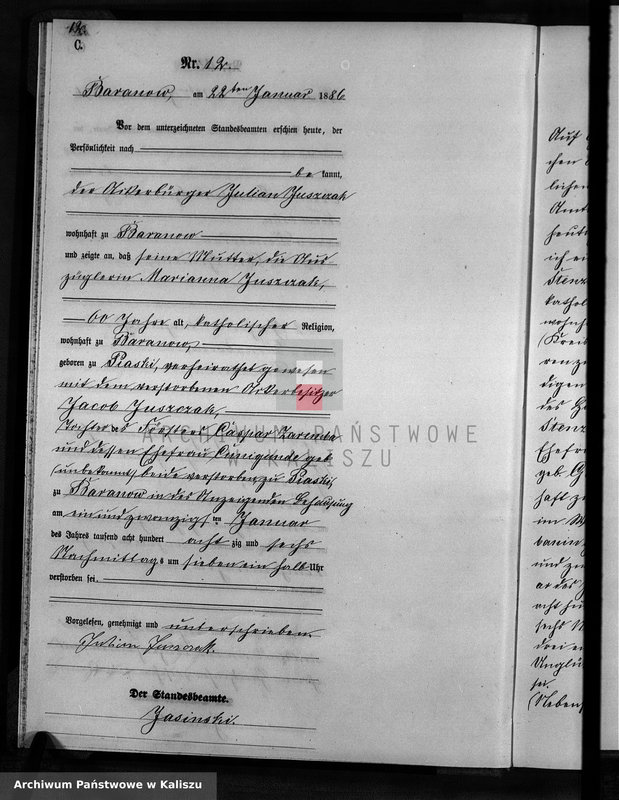 12.
C.
Nr. 12.
Baranow, am 22ten Januar 1886
Vor dem unterzeichneten Standesbeamten erschien heute, der
Persönlichkeit nach
be kannt,
der Ackerbürger Julian Juszczak
wohnhaft zu Baranow
und zeigte an, daß seine Mutter, die Aus
züglerin Marianna Juszczak,
60 Jahre alt, katholischer Religion,
wohnhaft zu Baranow,
geboren zu Piaski, verheirathet gewesen
mit dem verstorbenen Ackerbesitzer
Jacob Juszczak,
Tochter des Försters Caspar
und dessen Ehefrau Cunigunde geb.
(unbekannt) beide verstorben zu Piaski,
zu Baranow in des Anzeigenden Behausung
am ein und zwanzig ten Januar
des Jahres tausend acht hundert acht zig und sechs
Nachmittags um sieben ein halb Uhr
verstorben sei.
Vorgelesen, genehmigt und unterschrieben.
Julian Juszczak.
Der Standesbeamte.
Jasinski.
ARCHIWUM PAŃSTWOWE
W KALISZU
Auf
chen
lichen
Amt
heut
ich ei
Stenz
kathol
wohnh
(Kreis
ren zu
digen
des
Stenz
Ehefr
geb. G
haft z
im W
und z
ar des
acht hu
sechs
drei
Unglü
sei.
(Neben
Archiwum Państwowe w Kaliszu